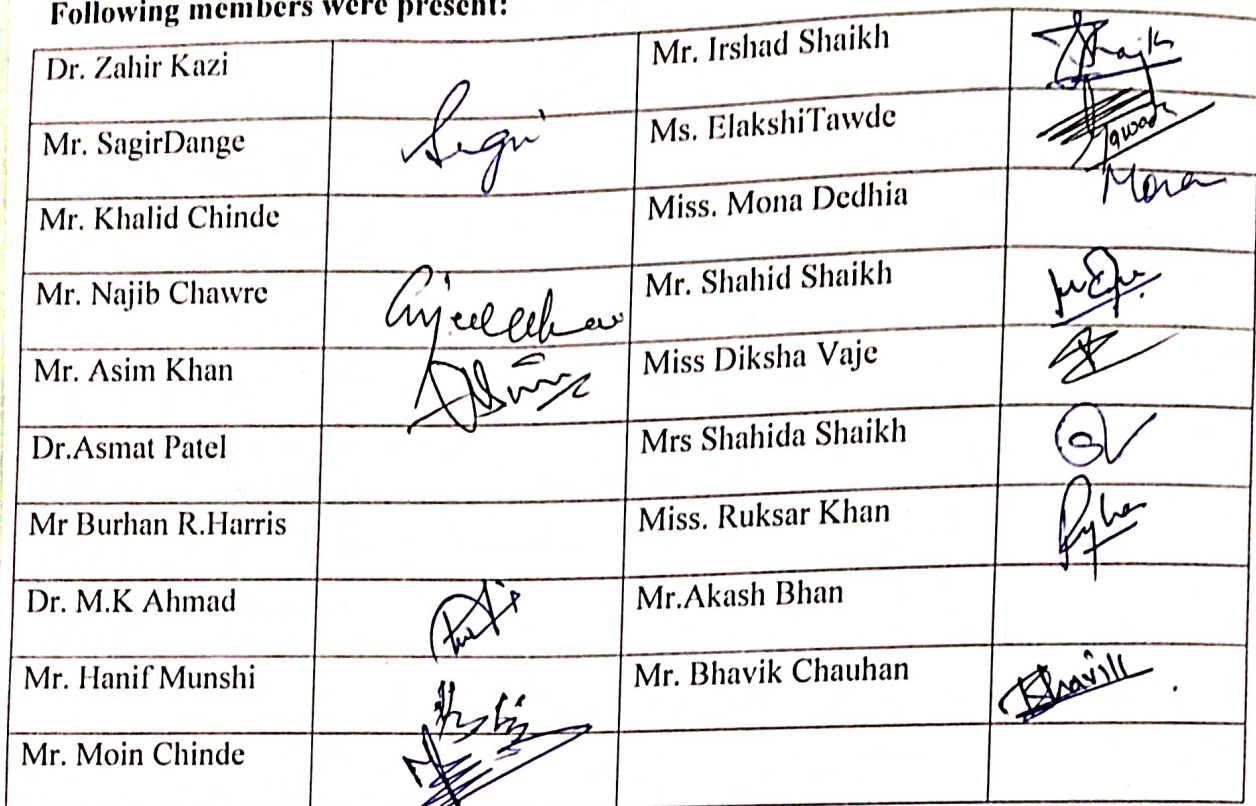 Following members were present:
Dr. Zahir Kazi
Mr. Irshad Shaikh
Shaik
Mr. SagirDange
Ms. ElakshiTawde
Mr. Khalid Chinde
Miss. Mona Dedhia
Mona
Mr. Najib Chawre
Mr. Shahid Shaikh
Mr. Asim Khan
Miss Diksha Vaje
Dr.Asmat Patel
Mrs Shahida Shaikh
Mr Burhan R.Harris
Miss. Ruksar Khan
Dr. M.K Ahmad
Mr.Akash Bhan
Mr. Hanif Munshi
Mr. Bhavik Chauhan
Bhavik
Mr. Moin Chinde